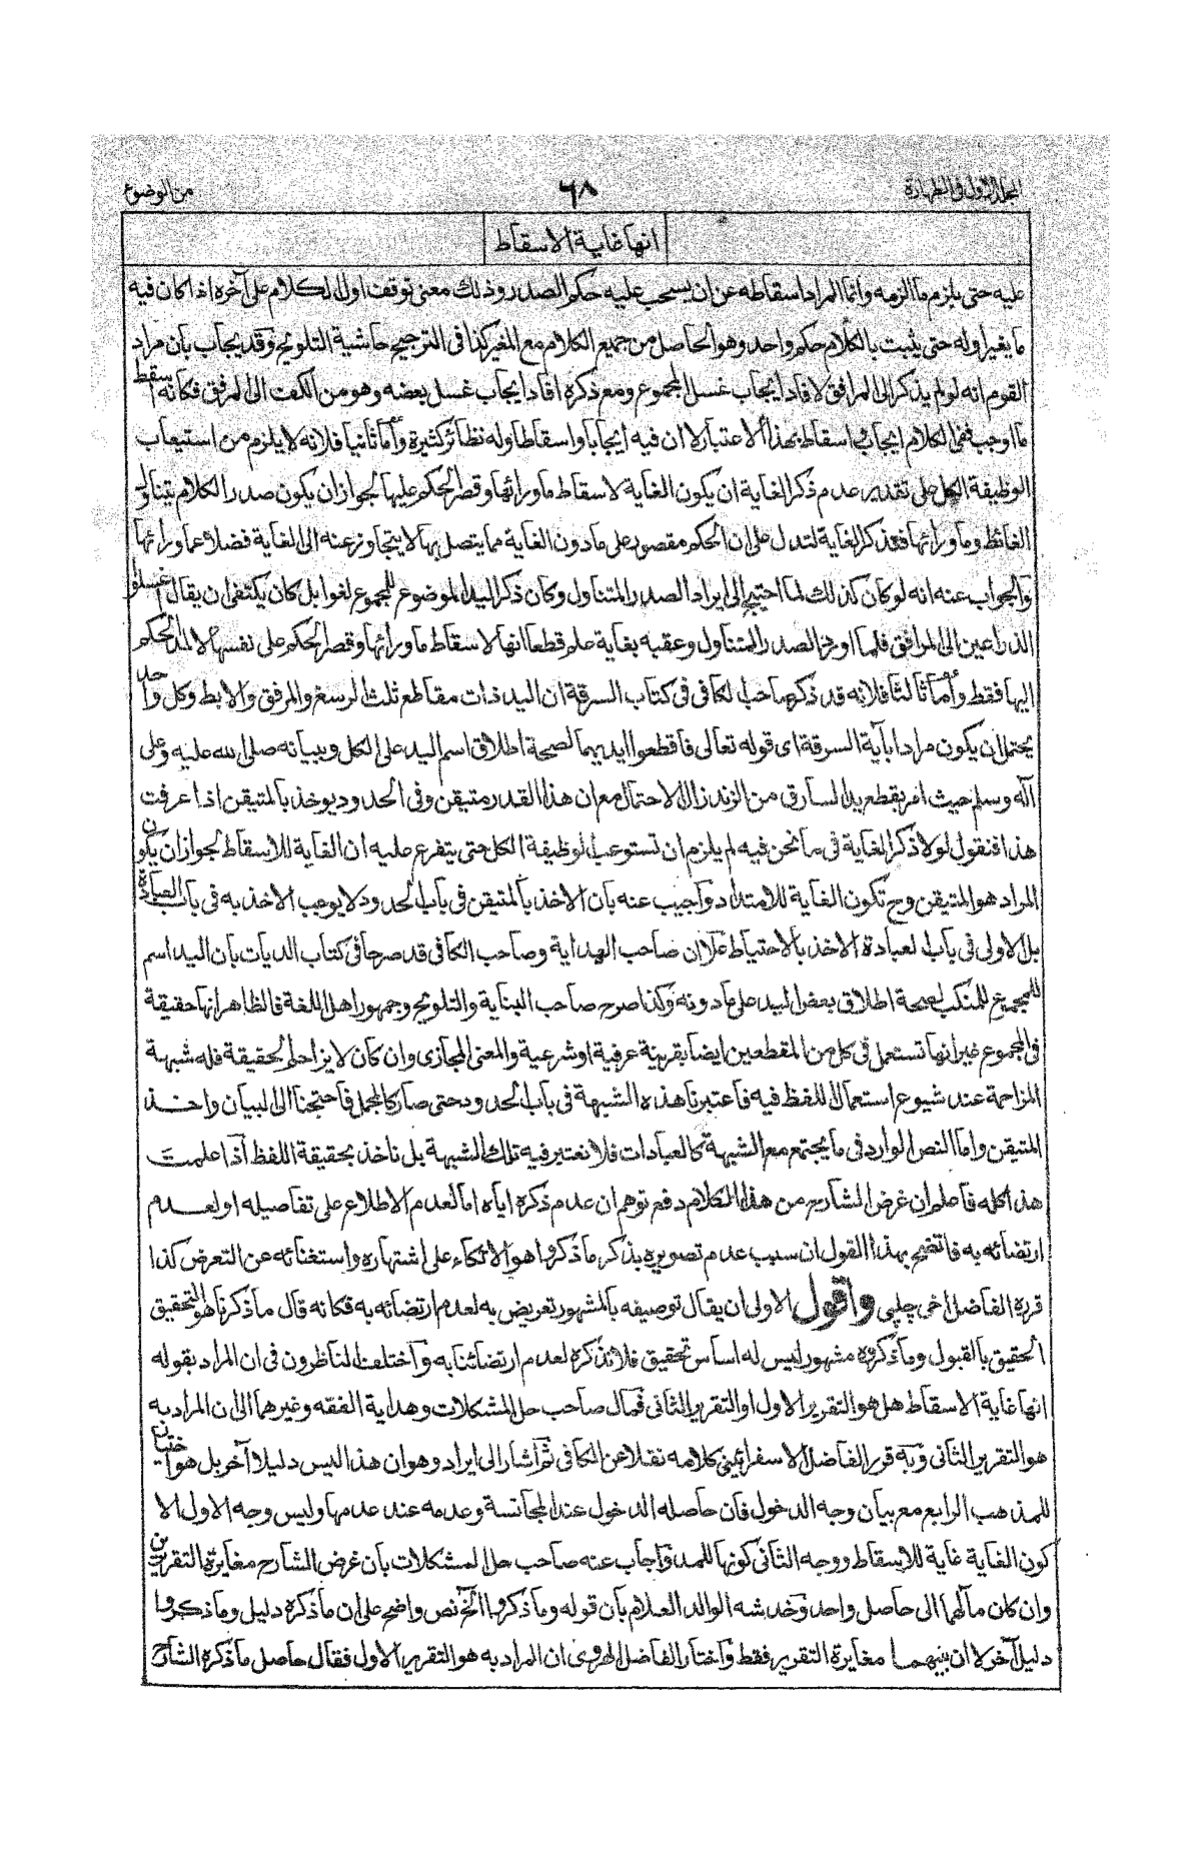 المجلد الاول فى الطهارة
٦٨
من الوضوء
انها غاية الاسقاط
عليه حتى يلزم ما الزمه وانما المراد اسقاطه عن ان يسحب عليه حكم الصدر وذلك معنى توقف اول الكلام على آخره اذا كان فيه
ما يغير اوله حتى يثبت بالكلام حكم واحد وهو الحاصل من جميع الكلام مع المغير كذا فى الترجيح حاشية التلويح وقد يجاب بان مراد
القوم انه لو لم يذكر الى المرافق لافاد ايجاب غسل المجموع ومع ذكره افاد ايجاب غسل بعضه وهو من الكف الى المرفق فكانه اسقط
ما اوجب ففى الكلام ايجاب واسقاط بهذا الاعتبار لا ان فيه ايجابا واسقاطا وله نظائر كثيرة وأما ثانيا فلانه لا يلزم من استيعاب
الوظيفة الكل على تقدير عدم ذكر الغاية ان يكون الغاية لاسقاط ما ورائها وقصر الحكم عليها لجواز ان يكون صدر الكلام يتناول
الغاية وما ورائها فعند ذكر الغاية لتدل على ان الحكم مقصور على ما دون الغاية مما يتصل بها لا يتجاوز عنه الى الغاية فضلا عما ورائها
والجواب عنه انه لو كان كذلك لما احتيج الى ايراد الصدر المتناول وكان ذكر اليد الموضوع للمجموع لغوا بل كان يكتفى ان يقال اغسلوا
الذراعين الى المرافق فلما اورد الصدر المتناول وعقبه بغاية علم قطعا انها لاسقاط ما ورائها وقصر الحكم على نفسها لا لمد الحكم
اليها فقط وأما ثالثا فلانه قد ذكر صاحب الكافى فى كتاب السرقة ان اليد ذات مقاطع ثلث الرسغ والمرفق والابط وكل واحد
يحتمل ان يكون مرادا بآية السرقة اى قوله تعالى فاقطعوا ايديهما لصحة اطلاق اسم اليد على الكل وببيانه صلى الله عليه وعلى
آله وسلم حيث امر بقطع يد السارق من الزند زال الاحتمال مع ان هذا القدر متيقن وفى الحدود يوخذ بالمتيقن اذا عرفت
هذا فنقول لولا ذكر الغاية فى ما نحن فيه لم يلزم ان تستوعب الوظيفة الكل حتى يتفرع عليه ان الغاية للاسقاط لجواز ان يكون
المراد هو المتيقن وح تكون الغاية للامتداد وأجيب عنه بان الاخذ بالمتيقن فى باب الحدود لا يوجب الاخذ به فى باب العبادة
بل الاولى فى باب العبادة الاخذ بالاحتياط على ان صاحب الهداية وصاحب الكافى قد صرحا فى كتاب الديات بان اليد اسم
للمجموع للمنكب لصحة اطلاق بعض اليد على ما دونه وكذا صرح صاحب البناية والتلويح وجمهور اهل اللغة فالظاهر انها حقيقة
فى المجموع غير انها تستعمل فى كل من المقطعين ايضا بقرينة عرفية او شرعية والمعنى المجازى وان كان لا يزاحم الحقيقة فله شبهة
المزاحمة عند شيوع استعمال اللفظ فيه فاعتبرنا هذه الشبهة فى باب الحدود حتى صار كالمجمل فاحتجنا الى البيان واخذ
المتيقن واما النص الوارد فى ما يجتمع مع الشبهة كالعبادات فلا نعتبر فيه تلك الشبهة بل ناخذ بحقيقة اللفظ اذا علمت
هذا كله فاعلم ان غرض الشارح من هذا الكلام دفع توهم ان عدم ذكره اياه اما لعدم الاطلاع على تفاصيله او لعدم
ارتضائه به فاتضح بهذا القول ان سبب عدم تصويره بذكر ما ذكروا هو الاتكاء على اشتهاره واستغنائه عن التعرض كذا
قرره الفاضل اخى چلپى واقول الاولى ان يقال توصيفه بالمشهور تعريض به لعدم ارتضائه به فكانه قال ما ذكرنا هو التحقيق
الحقيق بالقبول وما ذكروه مشهور ليس له اساس تحقيق فلا نذكره لعدم ارتضائنا به واختلف الناظرون فى ان المراد بقوله
انها غاية الاسقاط هل هو التقرير الاول او التقرير الثانى فمال صاحب حل المشكلات وهداية الفقه وغيرهما الى ان المراد به
هو التقرير الثانى وبه قرر الفاضل الاسفرائينى كلامه نقلا عن الكافى ثم اشار الى ايراد وهو ان هذا ليس دليلا آخر بل هو اختيار
للمذهب الرابع مع بيان وجه الدخول فان حاصله الدخول عند المجانسة وعدمه عند عدمها وليس وجه الاول الا
كون الغاية غاية للاسقاط ووجه الثانى كونها للمد وأجاب عنه صاحب حل المشكلات بان غرض الشارح مغايرة التقريرين
وان كان مآلهما الى حاصل واحد وخدشه الوالد العلام بان قوله وما ذكروا الخ نص واضح على ان ما ذكره دليل وما ذكروا
دليل آخر لا ان بينهما مغايرة التقرير فقط واختار الفاضل الهروى ان المراد به هو التقرير الاول فقال حاصل ما ذكره الشارح